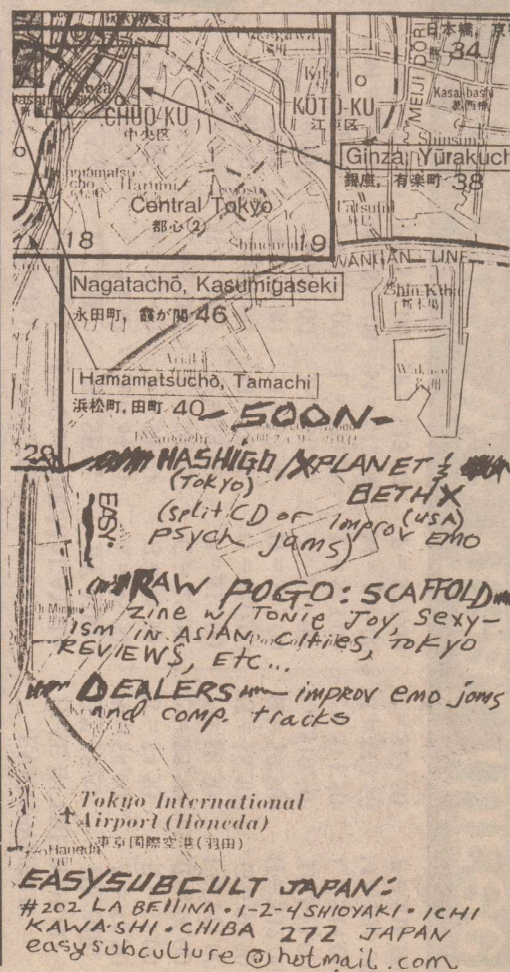 日本橋, 京
34
Kasaibashi
葛西橋
MEIJI DORI
CHUO-KU
中央区
KOTO-KU
江東区
Ginza, Yurakuch
銀座, 有楽町 38
Harumi
Central Tokyo
都心(2)
18
9
WANGAN LINE
Nagatachō, Kasumigaseki
永田町, 霞が関 46
Shin Kiba
Hamamatsuchō, Tamachi
浜松町, 田町 40
- SOON -
28
HASHIGO / XPLANET &
(TOKYO) BETHX
(split CD of improv (USA) emo
psych jams)
EASY.
RAW POGO: SCAFFOLD
zine w/ Tonie Joy, Sexy-
ism in ASIAN Cities, Tokyo
REVIEWS, Etc...
DEALERS — improv emo jams
and comp. tracks
Tokyo International
Airport (Haneda)
東京国際空港(羽田)
Haneda
EASYSUBCULT JAPAN:
#202 LA BELLINA • 1-2-4 SHIOYAKI • ICHI
KAWA-SHI • CHIBA 272 JAPAN
easysubculture@hotmail.com